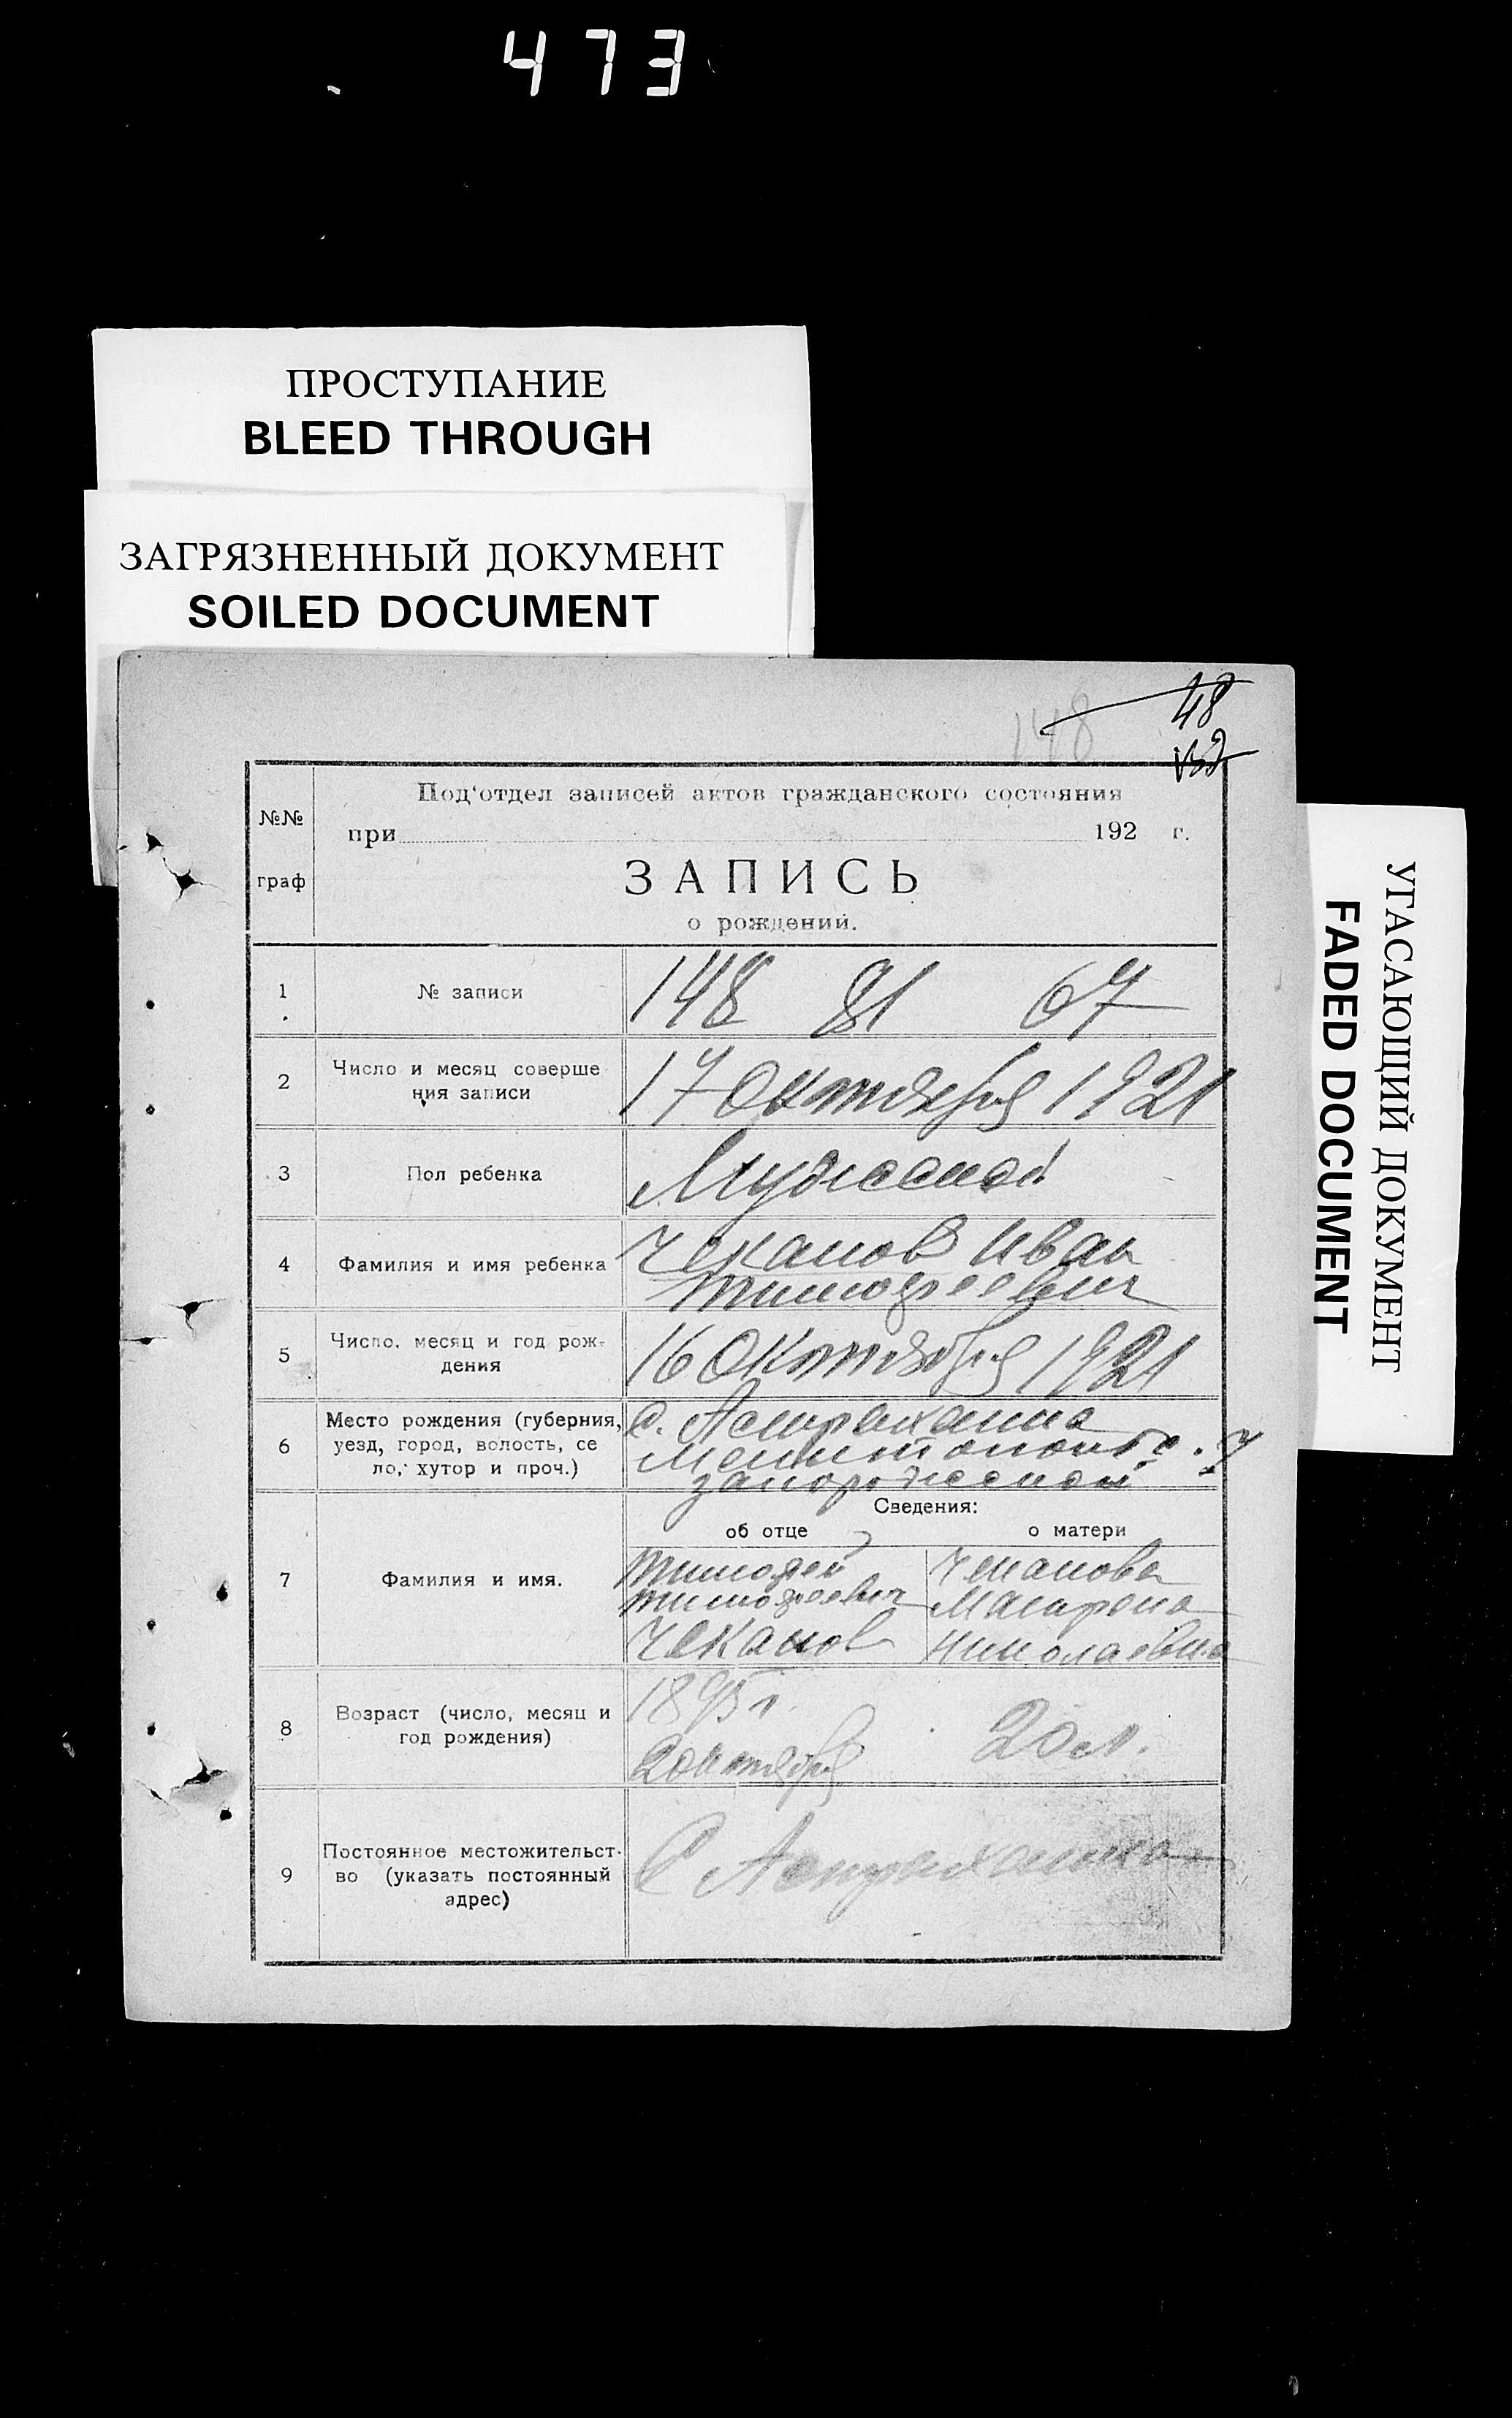 473
ПРОСТУПАНИЕ
BLEED THROUGH
ЗАГРЯЗНЕННЫЙ ДОКУМЕНТ
SOILED DOCUMENT
УГАСАЮЩИЙ ДОКУМЕНТ
FADED DOCUMENT
148
48
№№
граф
Под'отдел записей актов гражданского состояния
при 192 г.
ЗАПИСЬ
о рождений.
1 № записи 148 81 67
2 Число и месяц соверше
ния записи
17 Октября 1921
3 Пол ребенка Мужской
4 Фамилия и имя ребенка Чеканов Иван
Тимофеевич
5 Число, месяц и год рож-
дения
16 Октября 1921
6 Место рождения (губерния,
уезд, город, волость, се
ло, хутор и проч.)
с. Астраханка
Мелитопольс. у
Запорожской
Сведения:
об отце о матери
7 Фамилия и имя.
Тимофей
Тимофеевич
Чеканов
Чеканова
Николаевна
8 Возраст (число, месяц и
год рождения)
1895 г.
2 Октября
20 л.
9 Постоянное местожительст-
во (указать постоянный
адрес)
С Астраханка